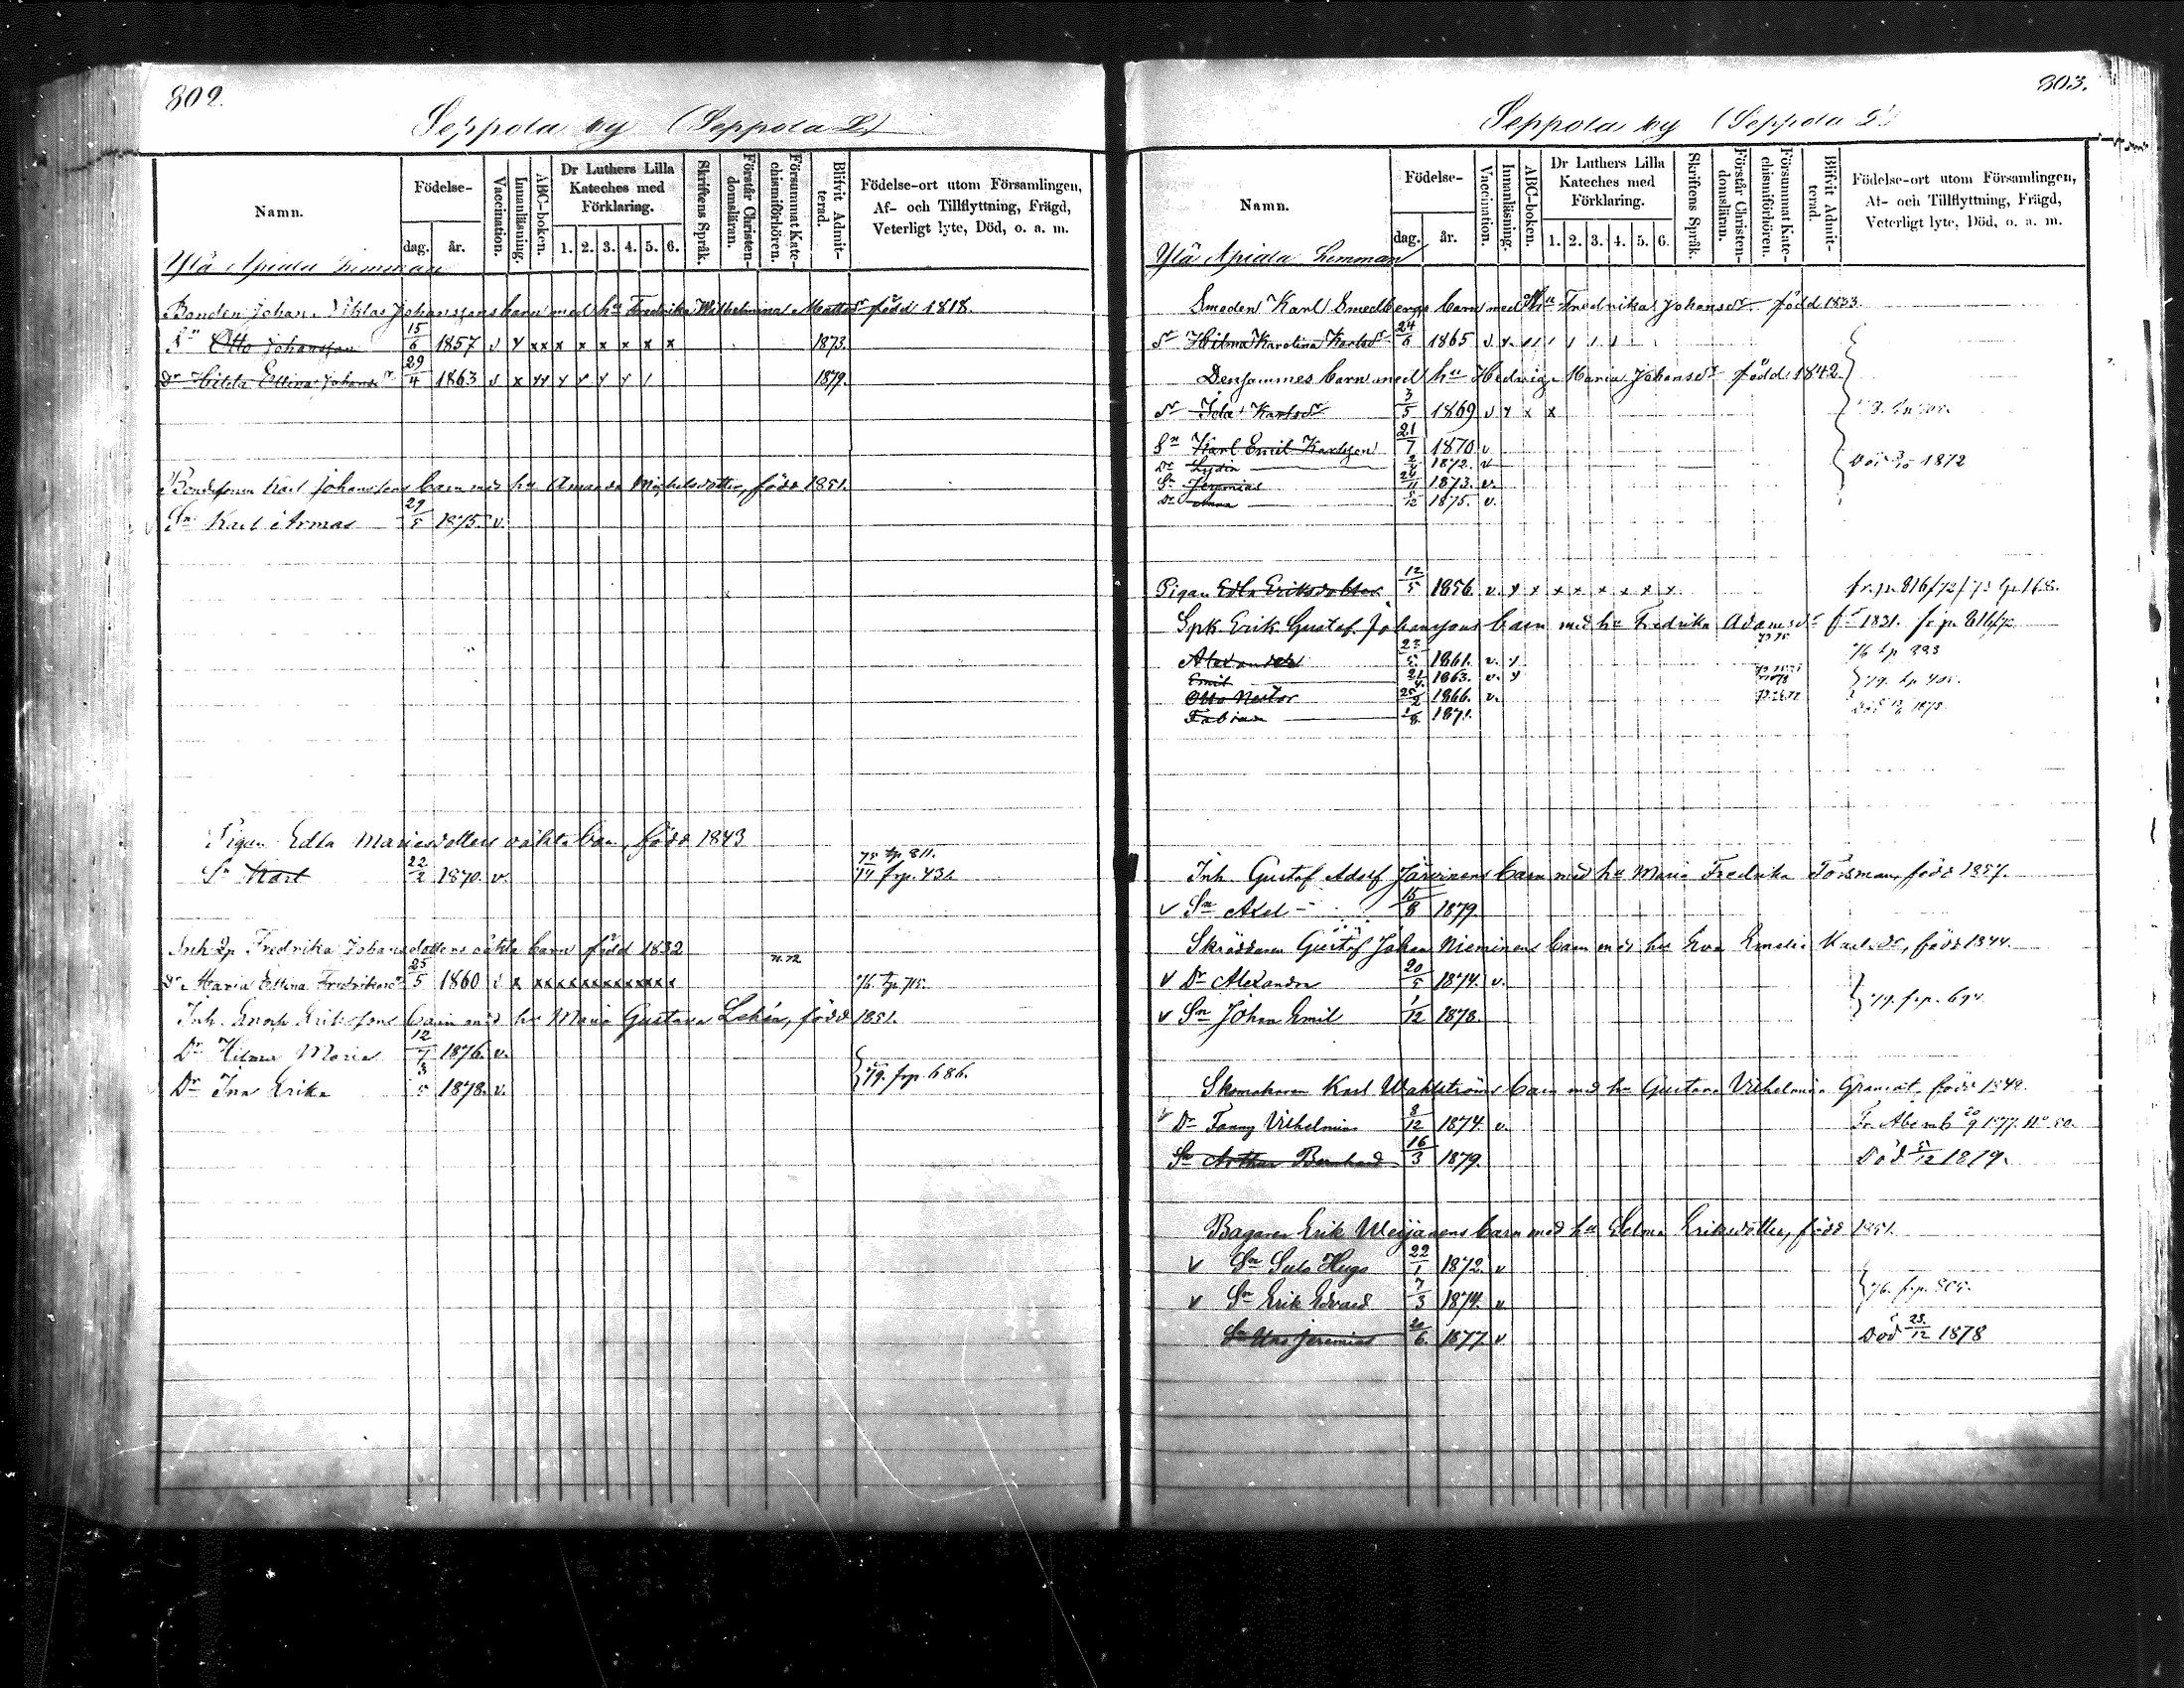 802.
Seppola by (Seppola L)
Namn.
Födelse-
dag. år.
Vaccination.
Innanläsning.
ABC-boken.
Dr Luthers Lilla Kateches med Förklaring.
1. 2. 3. 4. 5. 6.
Skriftens Språk.
Förstår Christendomsläran.
Försummat Katechismiförhören.
Blifvit Admitterad.
Födelse-ort utom Församlingen, Af- och Tillflyttning, Frägd, Veterligt lyte, Död, o. a. m.
Ylä Apiala Limman
Bonden Johan Niklas Johanssons barn med hu Fredrika Wilhelmina Mattsdr född 1818.
Sn Otto Johansson 15/6 1857 v x xx x x x x x x 1873.
Dr Hilda Ellina Johansdr 29/4 1863 v x xx x x x x / 1879.
Bondesonen Karl Johanssons barn med hu Amanda Michelsdotter, född 1851.
Sn Karl Armas 29/5 1875. v.
Pigan Edla Mariesdotters oäkta barn, född 1843
75 tp. 811.
Sn Karl 22/2 1870. v. 74 frp. 431
Inh Fredrika Johansdotters oäkta barn född 1832
Dr Maria Ellina Fredriksdr 25/5 1860 v x xxxxxxxxxxxxx 76 tp. 715.
Inh. Enok Erikssons barn med hu Maria Gustava Lehén, född 1851.
Dr Hilma Maria 12/7 1876. v.
Dr Ina Erika 3/5 1878. v. 79. frp. 686.
803.
Seppola by (Seppola L)
Namn.
Födelse-
dag. år.
Vaccination.
Innanläsning.
ABC-boken.
Dr Luthers Lilla Kateches med Förklaring.
1. 2. 3. 4. 5. 6.
Skriftens Språk.
Förstår Christendomsläran.
Försummat Katechismiförhören.
Blifvit Admitterad.
Födelse-ort utom Församlingen, Af- och Tillflyttning, Frägd, Veterligt lyte, Död, o. a. m.
Ylä Apiala Limman
Smeden Karl Smedbergs barn med hu Fredrika Johansdr född 1833.
Dr Hilma Karolina Karlsdr 24/6 1865 v x
Densammes barn med hu Hedvig Maria Johansdr född 1842.
Dr Ida Karlsdr 3/5 1869 v x x x
Sn Karl Emil Karlsson 21/7 1870 v
Dr Lydia 1872. v Död 3/10 1872
Sn Jeremias 1873. v.
Dr Anna 1875. v.
Pigan Edla Eriksdotter 12/5 1856. v. x x x x x x x x fr. p. 816/72/73 tp. 168.
Spk. Erik Gustaf Johanssons barn med hu Fredrika Adamsdr f. 1831. fr. p. 816/72
Alexander 1861. v. x 76 tp. 893
Emil 1863. v. x
Otto Nestor 25/2 1866. v.
Fabian 1/8 1871.
Inh. Gustaf Adolf Järvinens barn med hu Maria Fredrika Forsman, född 1857.
v Sn Axel 15/8 1879
Skräddaren Gustaf Johan Nieminens barn med hu Eva Emelie Karlsdr, född 1844.
v Dr Alexandra 20/5 1874. v.
v Sn Johan Emil 1/12 1878. 79. frp. 694.
Skomakaren Karl Wahlströms barn med hu Gustava Vilhelmina Granat, född 1848.
v Dr Fanny Vilhelmina 8/12 1874 v. 1877. No 80.
Sn Arthur Bernhard 16/3 1879. Död 5/12 1879.
Bagaren Erik Weijanens barn med hu Selma Eriksdotter, född 1851.
v Sn Sulo Hugo 22/1 1872 v
v Sn Erik Edvard 7/3 1874. v. 76. frp. 805.
Sn Uno Jeremias 20/6 1877 v Död 25/12 1878